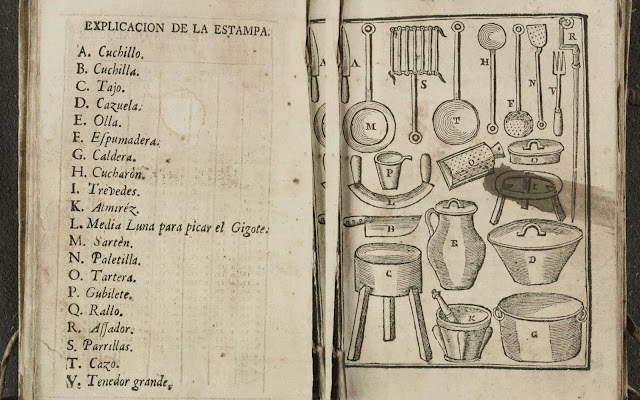 EXPLICACION DE LA ESTAMPA.
A. Cuchillo.
B. Cuchilla.
C. Tajo.
D. Cazuela.
E. Olla.
F. Eſpumadera.
G. Caldera.
H. Cucharón.
I. Trévedes.
K. Almiréz.
L. Media Luna para picar el Gigote.
M. Sartèn.
N. Paletilla.
O. Tartera.
P. Gubilete.
Q. Rallo.
R. Aſſador.
S. Parrillas.
T. Cazo.
V. Tenedor grande.
A
A
R
H
S
N
V
M
T
F
P
Q
O
L
I
B
E
D
C
K
G